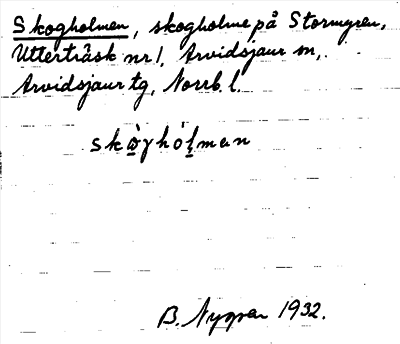 Skogholmen, skogholme på Stormyren,
Utterträsk nr 1, Arvidsjaur sn,
Arvidsjaur tg, Norrb. l.
skòghólmen
B. Nygren 1932.